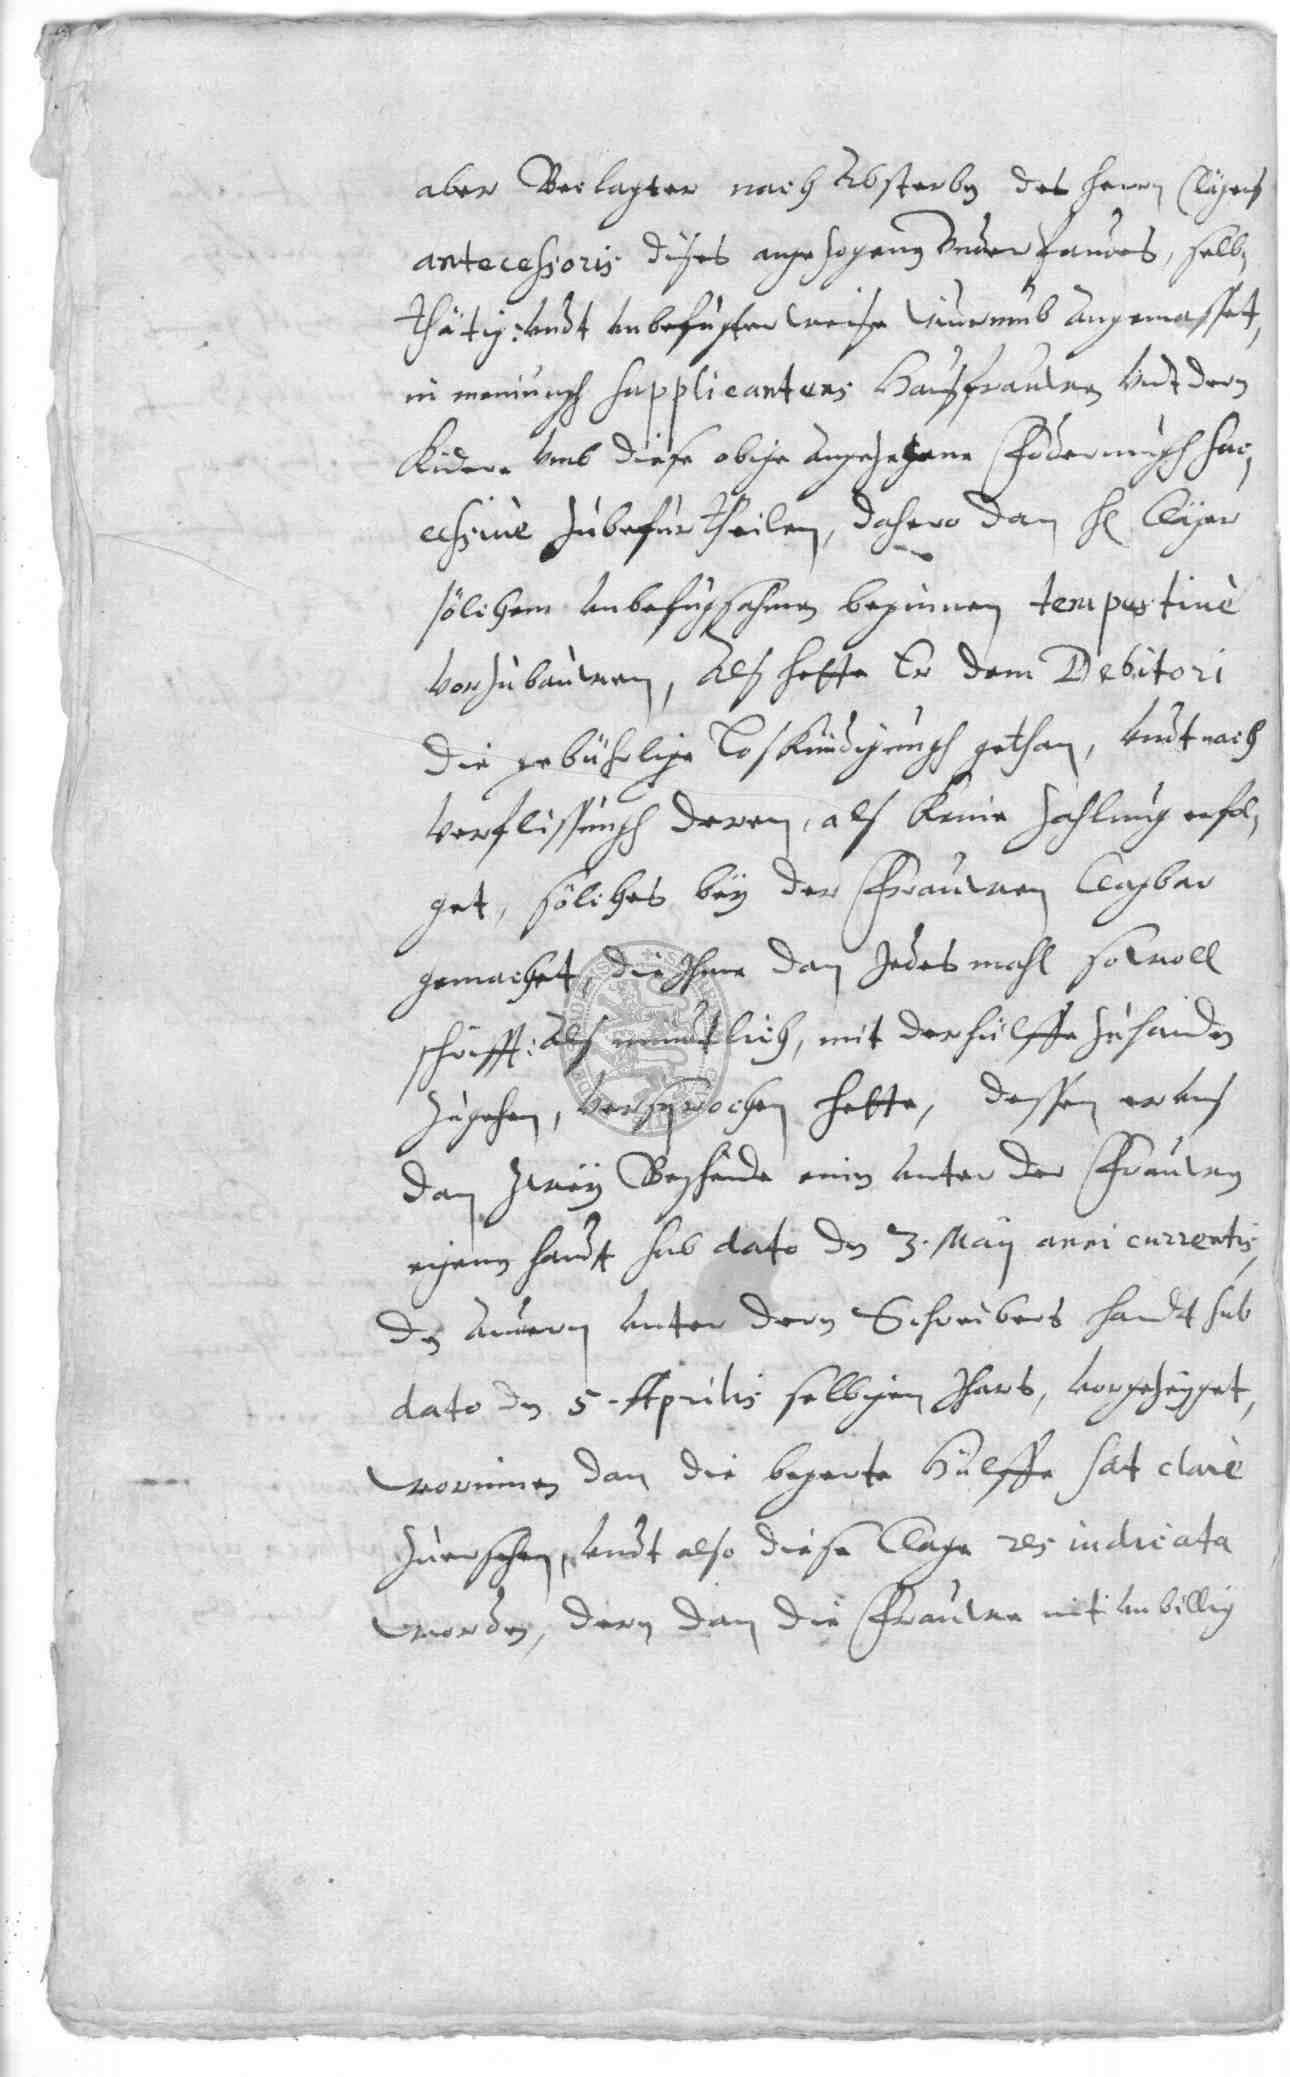 aber Beclagter nach Absterbn des Herrn Clägers
antecessoris dises angezogenen Underpfandes, selb,
thätig: undt unbefugter weise wiurumb angemasset,
in meinungh supplicanten Hausfrauwen undt dern
Kinder umb diese obige angezogene Foderungh suc,
cessivè zubefurtheilen, dahero dan H Cläger
sölichem unbefugsahmen beginnen tempestivè
vorzubauwen, Als hette Er dem Debitori
die gebührlige Loskundigungh gethan, undt nach
verflissungh deren, als keine zahlung erfol,
get, söliches bey der Frauwen Clagbar
gemachet, die Ihme dan Jedes mahl sowoll
schrifft: als mundtlich, mit der hülffe zuhanden
zugehen, versprochen hette, dessen er uns
dan zwey Bescheide einen unter der Frauwen
eigenen handt sub dato den 3. Maij anni currentis,
den andern unter dern Schreibers handt sub
dato den 5. Aprilis selbigen Jhars, vorgezeiget,
worinnen dan die begerte Hülffe sat clarè
zuersehen, undt also diese Clage res iudicata
worden, dern dan die Frauwe nit unbillig